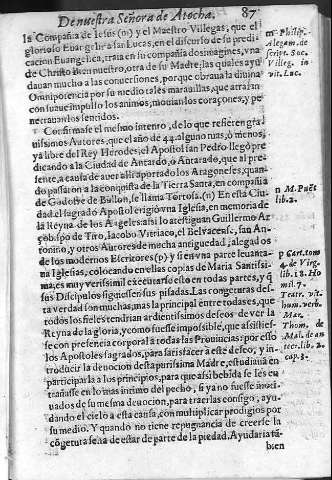 De nuestra Señora de Atocha. 87
la Compañia de Iesus (m) y el Maestro Villegas, que el
glorioso Euangelista san Lucas, en el discurso de su predi-
cacion Euangelica, traìa en su compañia dos imagines, vna
de Christo bien nuestro, otra de su Madre; las quales ayu
dauan mucho a las conuersiones, porque obraua la diuina
Omnipotencia por su medio tales marauillas, que atraìan
con suaue impulso los animos, mouian los coraçones, y pe
netrauan los sentidos.
Confirmase el mesmo intento, de lo que refieren gra
uissimos Autores, que el año de 44. alguno mas, ò menos,
ya libre del Rey Herodes, el Apostol san Pedro llegò pre
dicando a la Ciudad de Antardo, ò Antarado, que al pre-
sente, a causa de auer alli aportado los Aragoneses, quan-
do passaron a la conquista de la Tierra Santa, en compañia
de Godofre de Bullon, se llama Tortosa. (n) En esta Ciu-
dad el sagrado Apostol erigiò vna Iglesia, en memoria de
la Reyna de los Angeles: assi lo atestiguan Guillermo Ar
çobispo de Tiro, Iacobo Vitriaco, el Belvacense, san An-
tonino, y otros Autores de mucha antiguedad, alegados
de los modernos Escritores (p) y si en vna parte leuanta-
ua Iglesias, colocando en ellas copias de Maria Santissi-
ma, es muy verisimil executarse esto en todas partes, y q̃
sus Discipulos siguiessen sus pisadas. Las congeturas des-
ta verdad son muchas, mas la principal entre todas es, que
todos los fieles tendrian ardientissimos deseos de ver la
Reyna de la gloria, y como fuesse impossible, que assisties-
se con presencia corporal a todas las Prouincias: por esso
los Apostoles sagrados, para satisfacer a este deseo, y in-
troducir la deuocion desta purissima Madre, estudiauã en
participarla a los principios, para que assi bebida se les en
trañasse en lo mas intimo del pecho, si ya no fuesse moti-
uados de su mesma deuocion, para traerlas consigo, ayu-
dando el cielo a esta causa, con multiplicar prodigios por
su medio. Y quando no tiene repugnancia de creerse la
cõgetura seña de estar de parte de la piedad. Ayudaria tã-
bien
m Philip.
Alegam. de
script. Soc.
Villeg. in
vit. Luc.
n M. Paẽt
lib. 2.
p Cart. tom
4. de Virg.
lib. 18. Ho
mil. 7.
Mar.
Thom. de
lib. 2.
cap. 3.